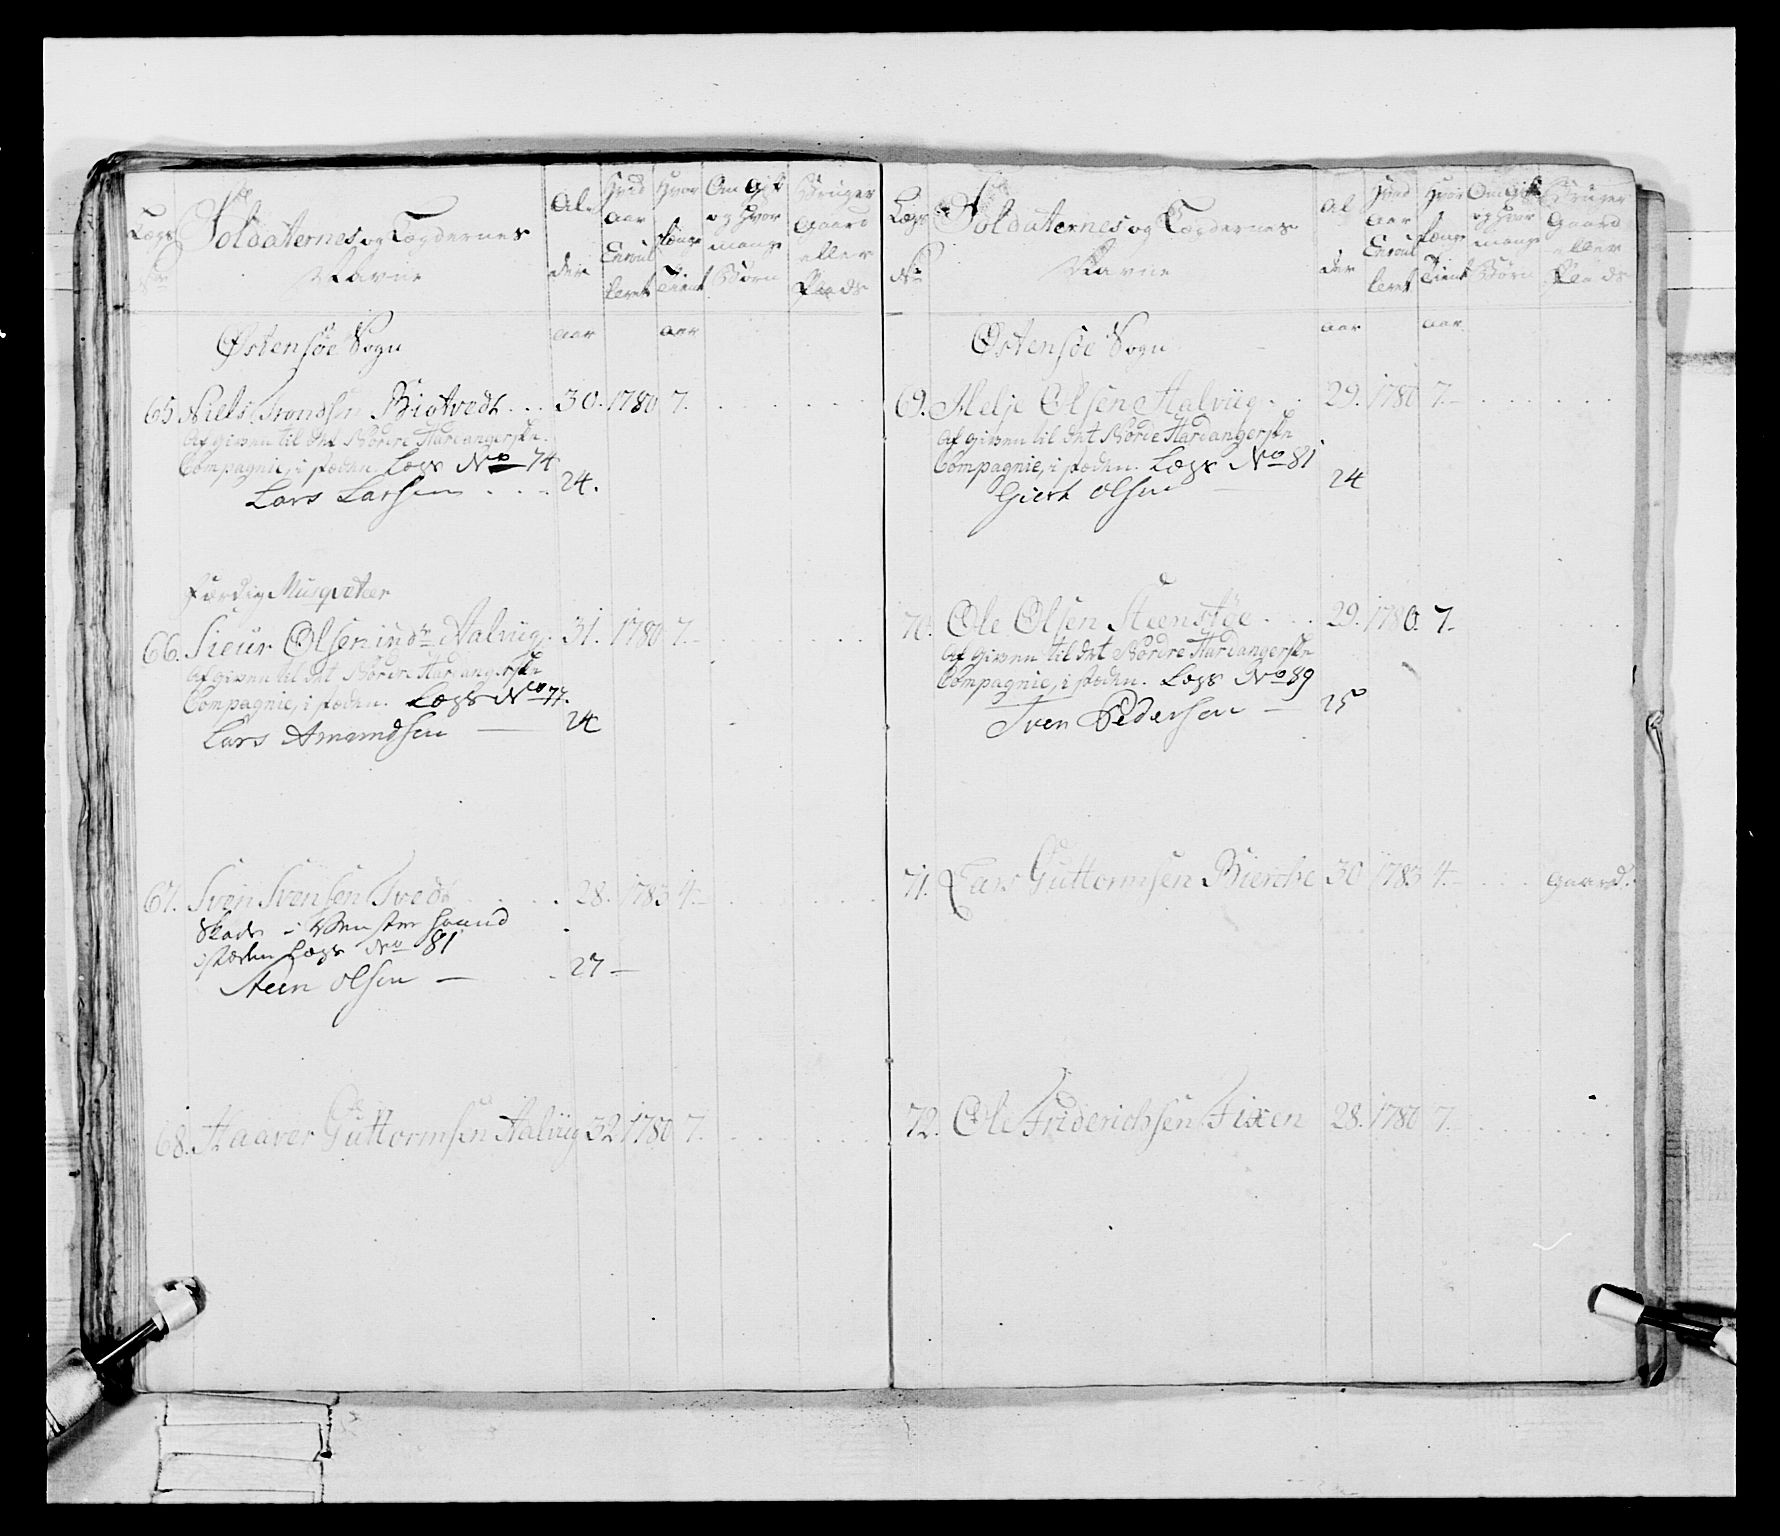 Lægs No
Soldaternes og Lægdernes Navne
Alder
Hvad aar Enroulleret
Hvor længe Tient
Om Gift og hvor mange Børn
Bruger Gaard eller Plads
Østensöe Sogn
aar aar
65. Niels Trondsen Biotvedt . . . 30. 1780 7.
Afgiven til det Nordre Hardangerske
Compagnie, i stæden Lægs No 74
Lars Larsen . . . 24.
færdig Musqveteer
66. Sieur Olsen ind: Aalviig. 31. 1780 7.
Afgiven til det Nordre Hardangerske
Compagnie, i stæden. Lægs No 77.
Lars Amundsen — 24
67. Sven Svensen Tvedt . . . 28. 1783 4.
Skade i Venster Haand
i stæden Lægs No 81
Steen Olsen — 27 —
68. Haaver Guttormsen Aalviig 32. 1780 7.
Lægs No
Soldaternes og Lægdernes Navne
Alder
Hvad aar Enroulleret
Hvor længe Tient
Om Gift og hvor mange Børn
Bruger Gaard eller Plads
Østensöe Sogn
aar aar
69. Melje Olsen Aalviig . . 29. 1780 7.
Afgiven til det Nordre Hardangerske
Compagnie, i stæden. Lægs No 81
Giert Olsen — 24
70. Ole Olsen Steenstöe . . . 29. 1780. 7.
Afgiven til det Nordre Hardangerske
Compagnie, i stæden. Lægs No 89
Sven Pedersen — 25
71. Lars Guttormsen Bierche 30 1783 4. . . . Gaard.
72. Ole Friderichsen Fixen 28. 1780 7.